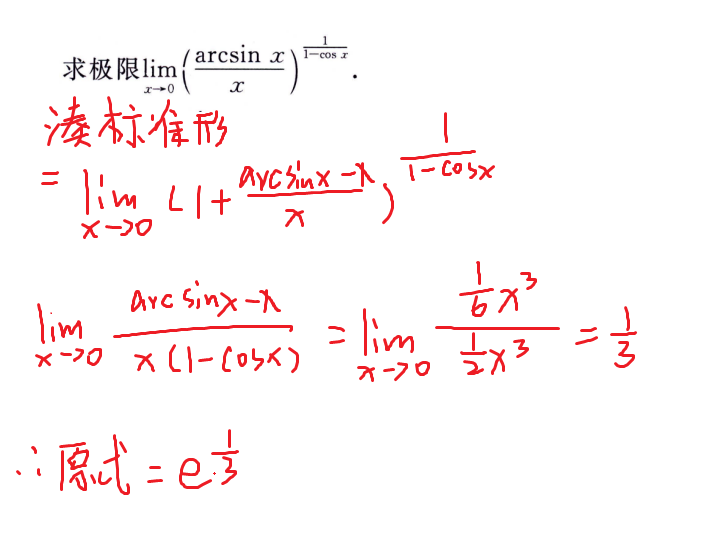 求极限lim_{x→0}(arcsin x / x)^{1/(1−cos x)}.
凑标准形
= lim_{x→0} (1 + (arcsinx−x)/x)^{1/(1−cosx)}
lim_{x→0} (arcsinx−x)/(x(1−cosx)) = lim_{x→0} (1/6 x³)/(1/2 x³) = 1/3
∴原式 = e^{1/3}